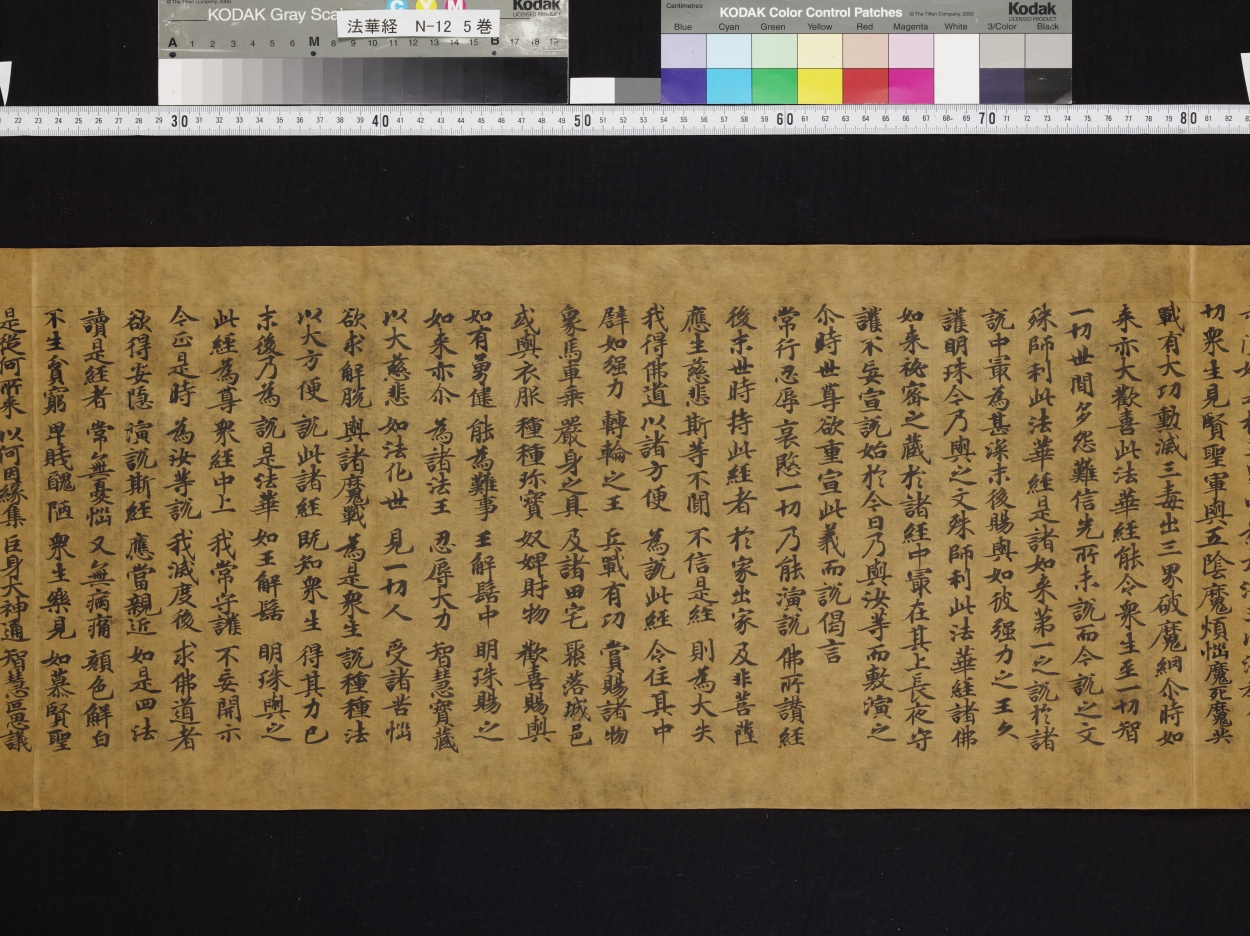 KODAK Gray Scale
Kodak
LICENSED PRODUCT
法華経　N-12　5巻
© The Tiffen Company, 2000
A 1 2 3 4 5 6 M 8 9 10 11 12 13 14 15 B 17 18 19
Centimetres
KODAK Color Control Patches
© The Tiffen Company, 2000
Kodak
LICENSED PRODUCT
Blue Cyan Green Yellow Red Magenta White 3/Color Black
切衆生見賢聖軍與五陰魔煩惱魔死魔共
戰有大功勳滅三毒出三界破魔網尒時如
来亦大歡喜此法華經能令衆生至一切智
一切世間多怨難信先所未說而今說之文
殊師利此法華經是諸如来第一之說於諸
說中最為甚深末後賜與如彼强力之王久
護明珠今乃與之文殊師利此法華經諸佛
如来秘密之藏於諸經中最在其上長夜守
護不妄宣說始於今日乃與汝等而敷演之
尒時世尊欲重宣此義而說偈言
常行忍辱 哀愍一切 乃能演說 佛所讃經
後末世時 持此經者 於家出家 及非菩薩
應生慈悲 斯等不聞 不信是經 則為大失
我得佛道 以諸方便 為說此經 令住其中
譬如强力 轉輪之王 兵戰有功 賞賜諸物
象馬車乘 嚴身之具 及諸田宅 聚落城邑
或與衣服 種種珎寶 奴婢財物 歡喜賜與
如有勇健 能為難事 王解髻中 明珠賜之
如来亦尒 為諸法王 忍辱大力 智慧寶藏
以大慈悲 如法化世 見一切人 受諸苦惱
欲求解脱 與諸魔戰 為是衆生 說種種法
以大方便 說此諸經 既知衆生 得其力已
末後乃為 說是法華 如王解髻 明珠與之
此經為尊 衆經中上 我常守護 不妄開示
今正是時 為汝等說 我滅度後 求佛道者
欲得安隱 演說斯經 應當親近 如是四法
讀是經者 常無憂惱 又無病痛 顔色鮮白
不生貧窮 卑賤醜陋 衆生樂見 如慕賢聖
是從何所来 以何因緣集 巨身大神通 智慧叵思議